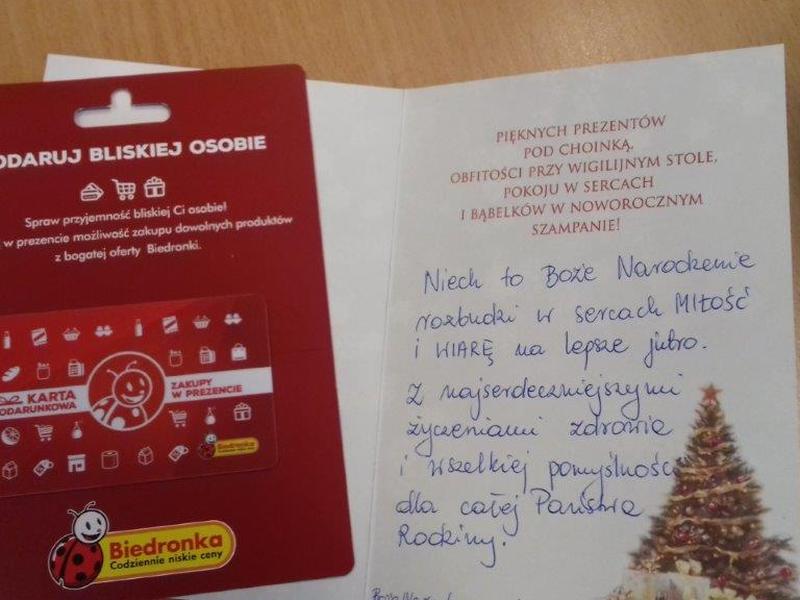 ODARUJ BLISKIEJ OSOBIE
Spraw przyjemność bliskiej Ci osobie!
w prezencie możliwość zakupu dowolnych produktów
z bogatej oferty Biedronki.
KARTA
ODARUNKOWA
ZAKUPY
W PREZENCIE
Biedronka
Codziennie niskie ceny
Biedronka
Codziennie niskie ceny
PIĘKNYCH PREZENTÓW
POD CHOINKĄ,
OBFITOŚCI PRZY WIGILIJNYM STOLE,
POKOJU W SERCACH
I BĄBELKÓW W NOWOROCZNYM
SZAMPANIE!
Niech to Boże Narodzenie
rozbudzi w sercach MIŁOŚĆ
i WIARĘ na lepsze jutro.
Z najserdeczniejszymi
życzeniami zdrowia
i wszelkiej pomyślności
dla całej Państwa
Rodziny.